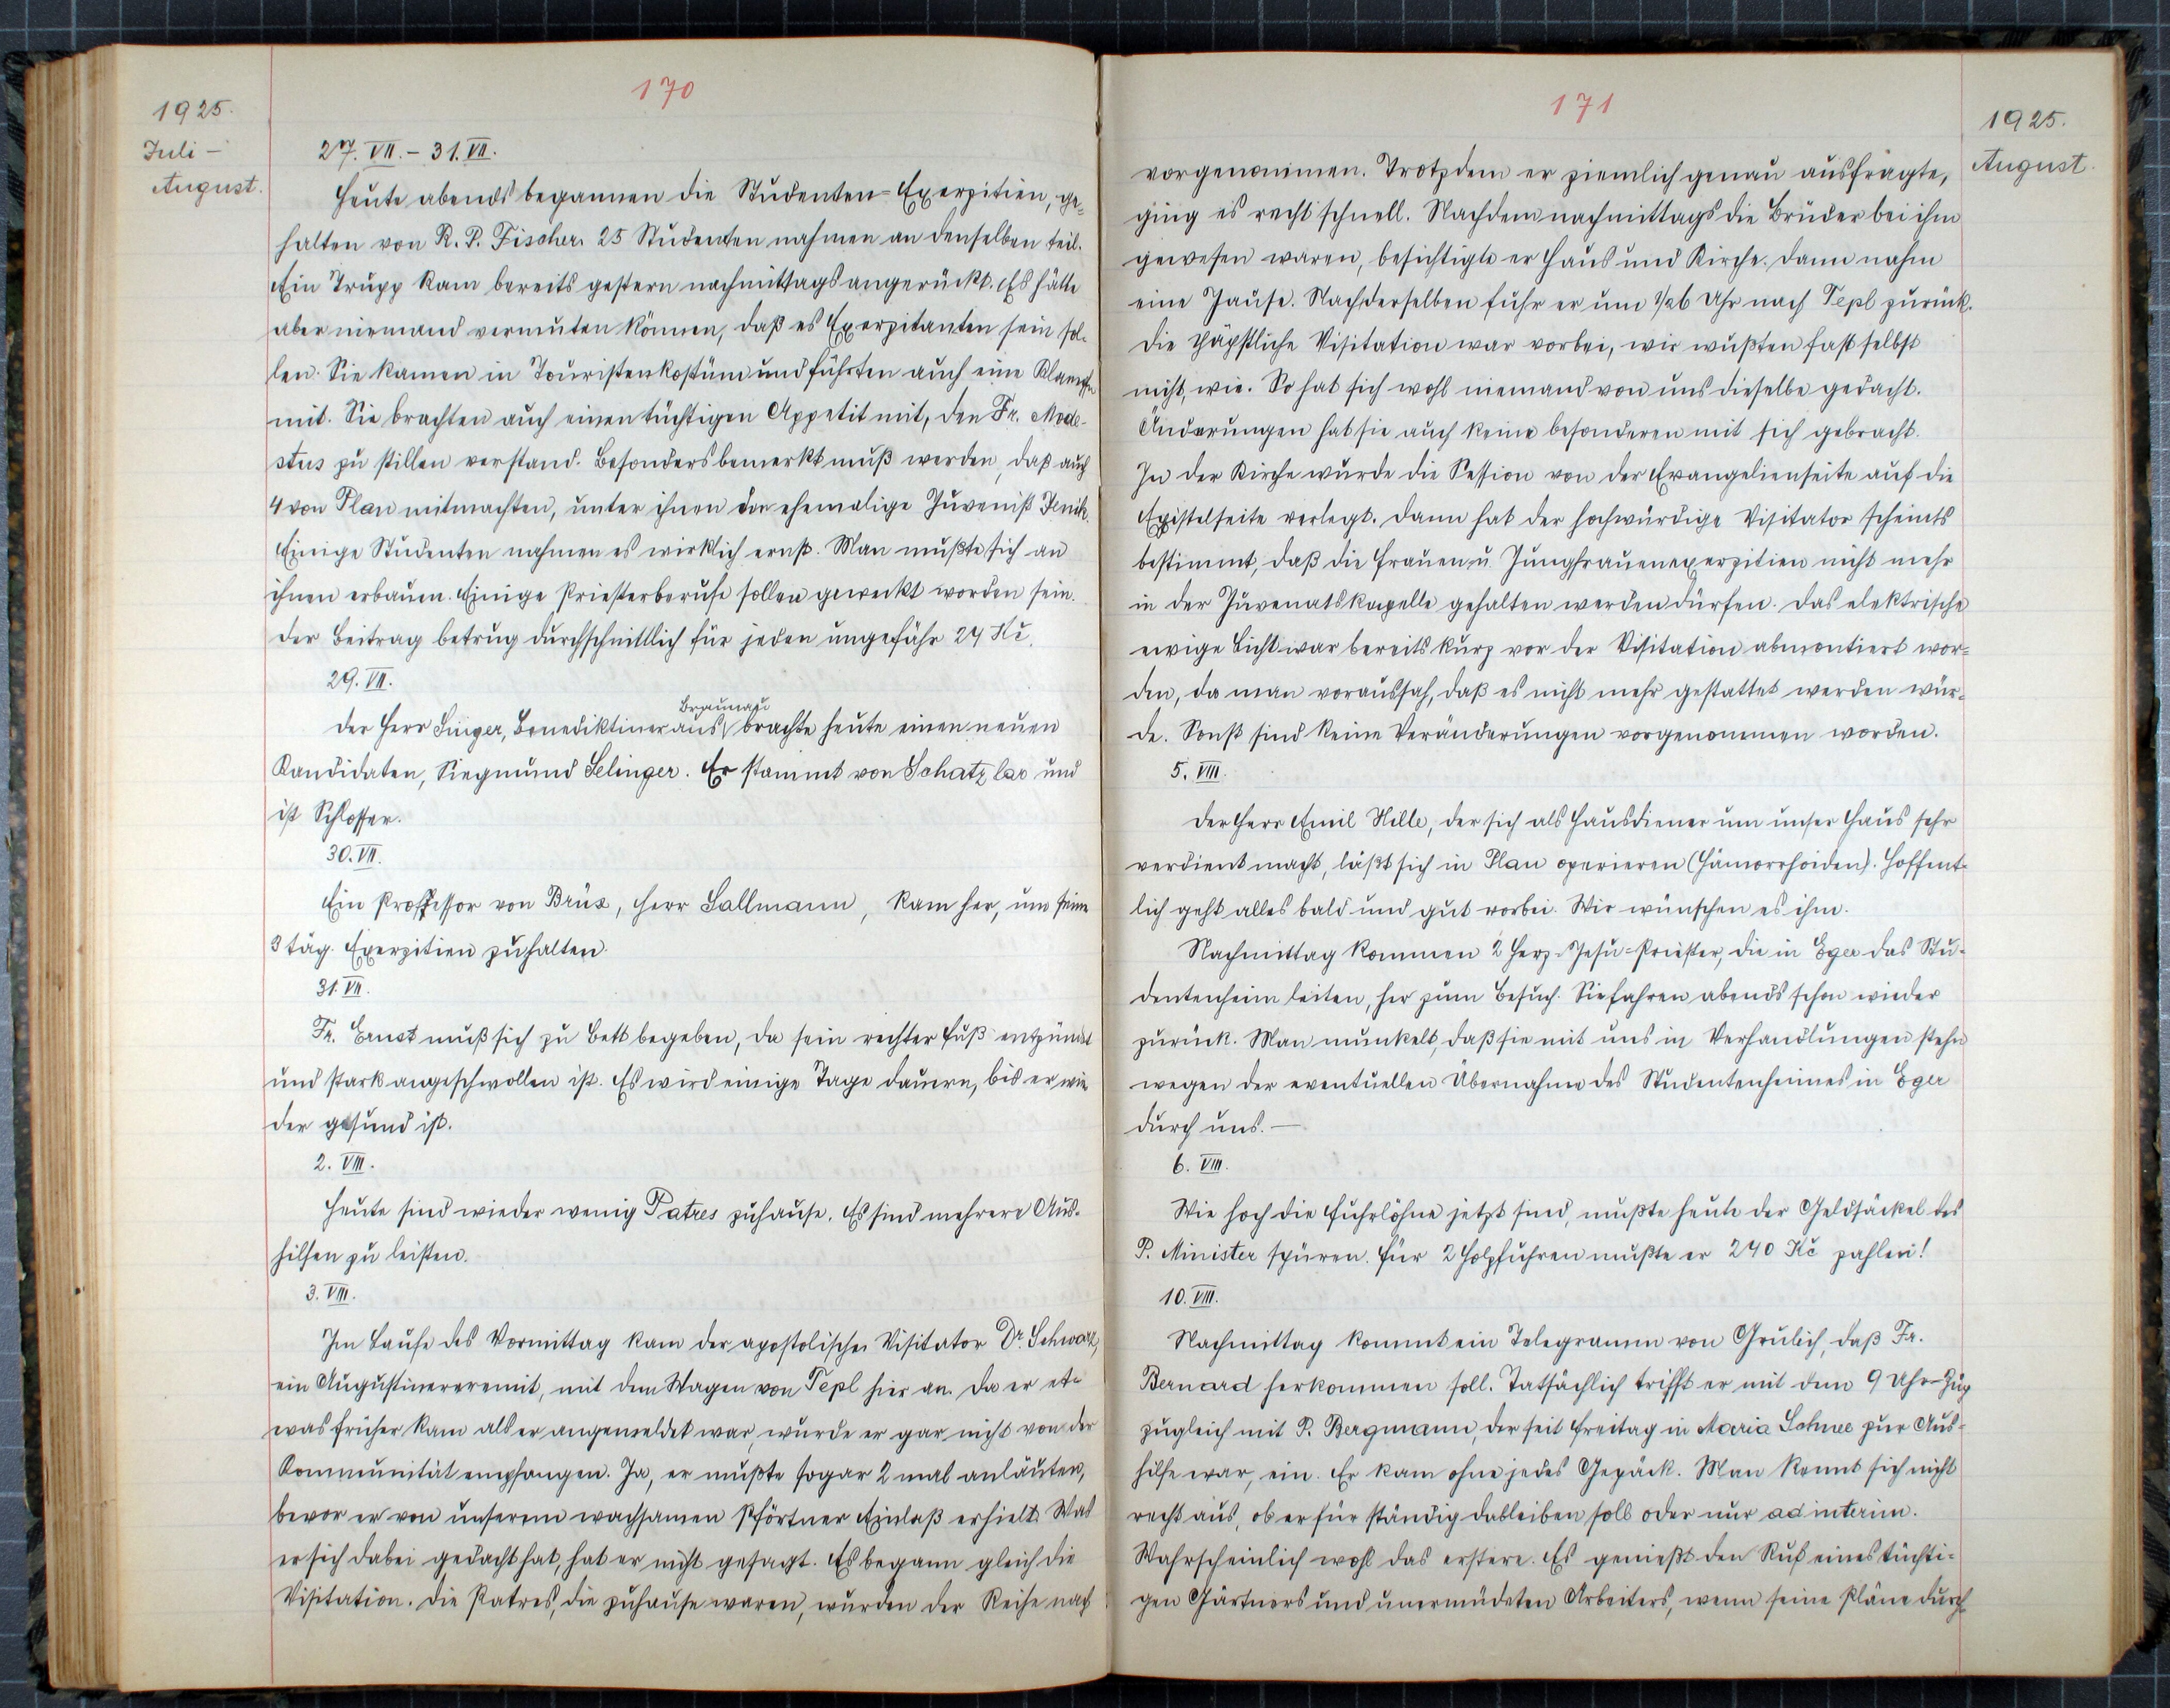 170
1925.
Juli –
August.
27. VII. – 31. VII.
Heute abends begannen die Studenten-Exerzitien, ge-
halten von R. P. Fischer. 25 Studenten nahmen an denselben teil.
Ein Trupp kam bereits gestern nachmittags angerückt. Es hätte
aber niemand vermuten können, daß es Exerzitanten sein sol-
len. Sie kamen in Touristenkostüm und führten auch eine Klampfe
mit. Sie brachten auch einen tüchtigen Appetit mit, den Fr. Mode-
stus zu stillen verstand. Besonders bemerkt muß werden, daß auch
4 von Plan mitmachten, unter ihnen der ehemalige Juvenist
Einige Studenten nahmen es wirklich ernst. Man mußte sich an
ihnen erbauen. Einige Priesterberufe sollen geweckt worden sein.
Der Beitrag betrug durchschnittlich für jeden ungefähr 24 Kč.
29. VII.
Braunau
Der Herr Singer, Benediktiner aus brachte heute einen neuen
Kandidaten, Siegmund Selinger. Er stammt von Schatzlar und
ist Schlosser.
30. VII.
Ein Professor von Brüx, Herr Sallmann, kam her, um seine
3 täg. Exerzitien zu halten.
31. VII.
Fr. Ernst muß sich zu Bett begeben, da sein rechter Fuß entzündet
und stark angeschwollen ist. Es wird einige Tage dauern, bis er wie-
der gesund ist.
2. VIII.
Heute sind wieder wenig Patres zuhause. Es sind mehrere Aus-
hilfen zu leisten.
3. VIII.
Im Laufe des Vormittag kam der apostolische Visitator Dr. Schwarz,
ein Augustinereremit, mit dem Wagen von Tepl hier an. Da er et-
was früher kam als er angemeldet war, wurde er gar nicht von der
Kommunität empfangen. Ja, er mußte sogar 2 mal anläuten,
bevor er von unserem wachsamen Pförtner Einlaß erhielt. Was
er sich dabei gedacht hat, hat er nicht gesagt. Es begann gleich die
Visitation. Die Patres, die zuhause waren, wurden der Reihe nach
171
1925.
August.
vorgenommen. Trotzdem er ziemlich genau ausfragte,
ging es recht schnell. Nachdem nachmittags die Brüder bei ihm
gewesen waren, besichtigte er Haus und Kirche. Dann nahm
eine Jause. Nach derselben fuhr er um 1/2 6 Uhr nach Tepl zurück.
Die päpstliche Visitation war vorbei, wir wußten fast selbst
nicht, wie. So hat sich wohl niemand von uns dieselbe gedacht.
Änderungen hat sie auch keine besonderen mit sich gebracht.
In der Kirche wurde die Session von der Evangelienseite auf die
Epistelseite verlegt. Dann hat der hochwürdige Visitator scheints
bestimmt, daß die Frauen u. Jungfrauenexerzitien nicht mehr
in der Juvenatskapelle gehalten werden dürfen. Das elektrische
ewige Licht war bereits kurz vor der Visitation abmontiert wor-
den, da man voraussah, daß es nicht mehr gestattet werden wür-
de. Sonst sind keine Veränderungen vorgenommen worden.
5. VIII.
Der Herr Emil Hille, der sich als Hausdiener um unser Haus sehr
verdient macht, läßt sich in Plan operieren (Hämorrhoiden). Hoffent-
lich geht alles bald und gut vorbei. Wir wünschen es ihm.
Nachmittag kommen 2 Herz-Jesu-Priester, die in Eger das Stu-
dentenheim leiten, her zum Besuch. Sie fahren abends schon wieder
zurück. Man munkelt, daß sie mit uns in Verhandlungen stehn
wegen der eventuellen Übernahme des Studentenheimes in Eger
durch uns. –
6. VIII.
Wie hoch die Fuhrlöhne jetzt sind, mußte heute der Geldsäckel des
P. Minister spüren. Für 2 Holzfuhren mußte er 240 Kč zahlen!
10. VIII.
Nachmittag kommt ein Telegramm von Grulich, daß Fr.
Bernard herkommen soll. Tatsächlich trifft er mit dem 9 Uhr-Zug
zugleich mit P. Bergmann, der seit Freitag in Maria Schnee zur Aus-
hilfe war, ein. Er kam ohne jedes Gepäck. Man kennt sich nicht
recht aus, ob er für ständig dableiben soll oder nur ad interim.
Wahrscheinlich wohl das erstere. Es genießt den Ruf eines tüchti-
gen Gärtners und unermüdeten Arbeiters, wenn seine Pläne durch-